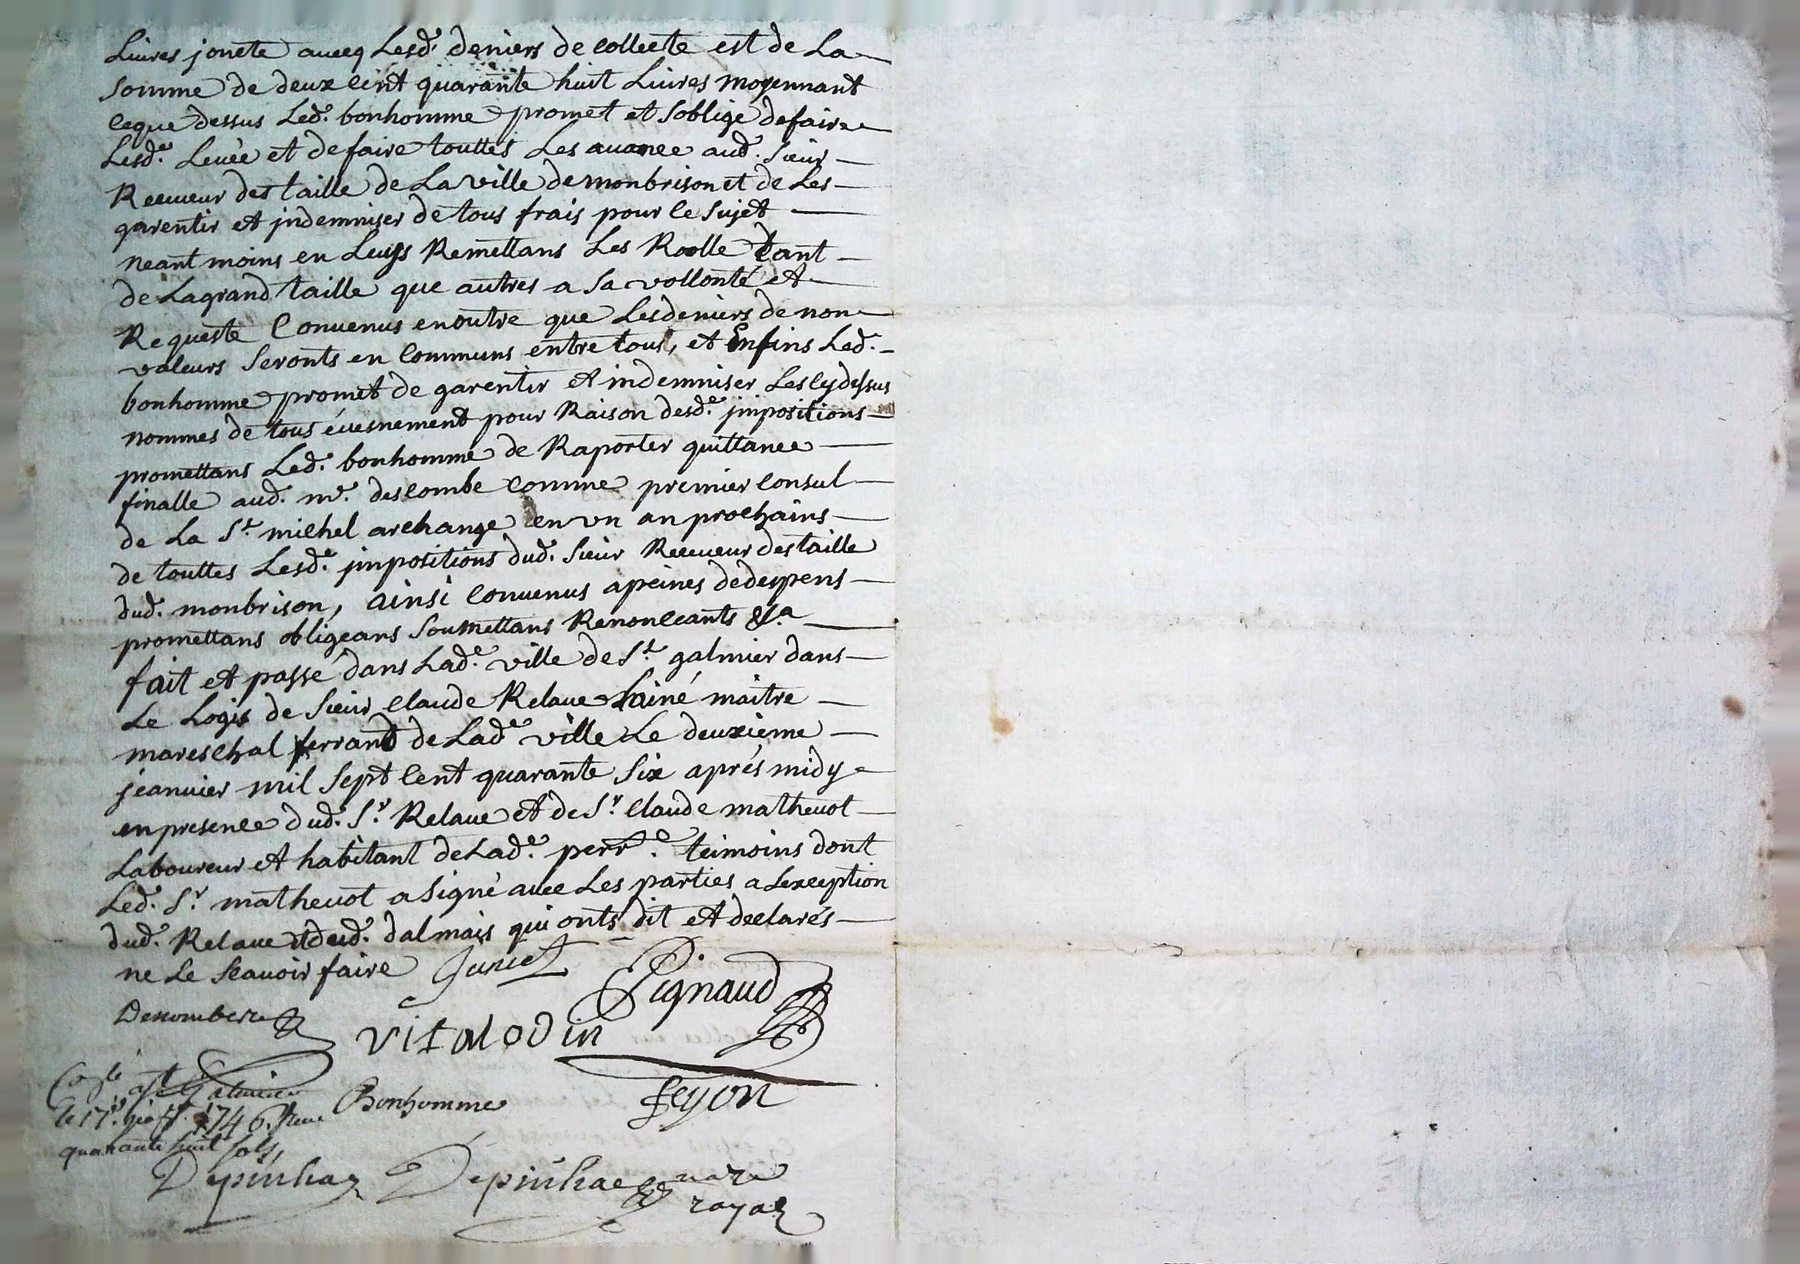 Livres joncte avecq Lesd. deniers de collecte est de La
Somme de deux cent quarante huit Livres moyennant
ceque dessus Led. bonhomme promet et Soblige defaire
Lesd. Levée et defaire touttes Les avance aud. Sieur
Receveur des taille de La ville de monbrison et de Les
garentir et jndemniser de tous frais pour le Sujet
neant moins en Leurs Remettans Les Roolle tant
de Lagrand taille que autres a sa vollonté et
Requeste Convenus enoutre que Lesdeniers de non
valeurs Seronts en Communs entre tous, et Enfins Led.
bonhomme promet de garentir et indemniser Les cy dessus
nommes de tous évesnement pour Raison desd.e jmpositions
promettans Led. bonhomme de Raporter quittance
finalle aud. mr. descombe comme premier Consul
de La St. michel archange en un an prochains
de touttes Lesd.e jmpositions dud. Sieur Receveur des taille
dud. monbrison, ainsi Convenus apeines dedespens
promettans obligeans Soumettans Renonceants &a.
fait et passé dans Lad.e ville de St. galmier dans
Le Logis de Sieur Claude Relave Lainé maitre
mareschal ferrand de Lad.e ville Le deuxieme
jeanvier mil Sept Cent quarante Six aprés midy
en presence dud. Sr. Relave et de Sr. Claude mathevot
Laboureur et habitant de Lad.e perr.e teimoins dont
Led. Sr. mathevot a Signé avec Les parties a Lexception
dud. Relave et dud. dalmais qui onts dit et declarés
ne Le Scavoir faire
Pignaud
Vitalodin
Feyon
Bonhomme
Con.lé a St Galmier
le 17. 1746. Reçu
quarante huit Sols
Depinhac Depinhac no.re
royal